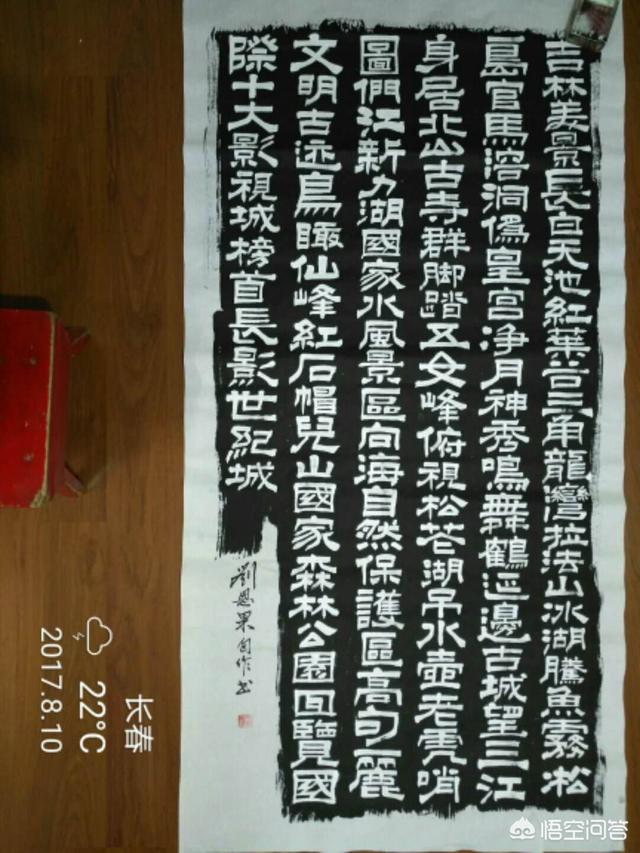 吉林美景長白天池紅葉谷三角龍灣拉法山冰湖騰魚霧凇
島官馬溶洞偽皇宮淨月神秀鳴舞鶴延邊古城望三江
身居北山古寺群脚踏五女峰俯視松花湖吊水壺老虎哨
圖們江新力湖國家水風景區向海自然保護區高句麗
文明古迹鳥瞰仙峰紅石帽兒山國家森林公園回覽國
際十大影視城榜首長影世紀城
劉恩果自作书
长春
22°C
2017.8.10
悟空问答